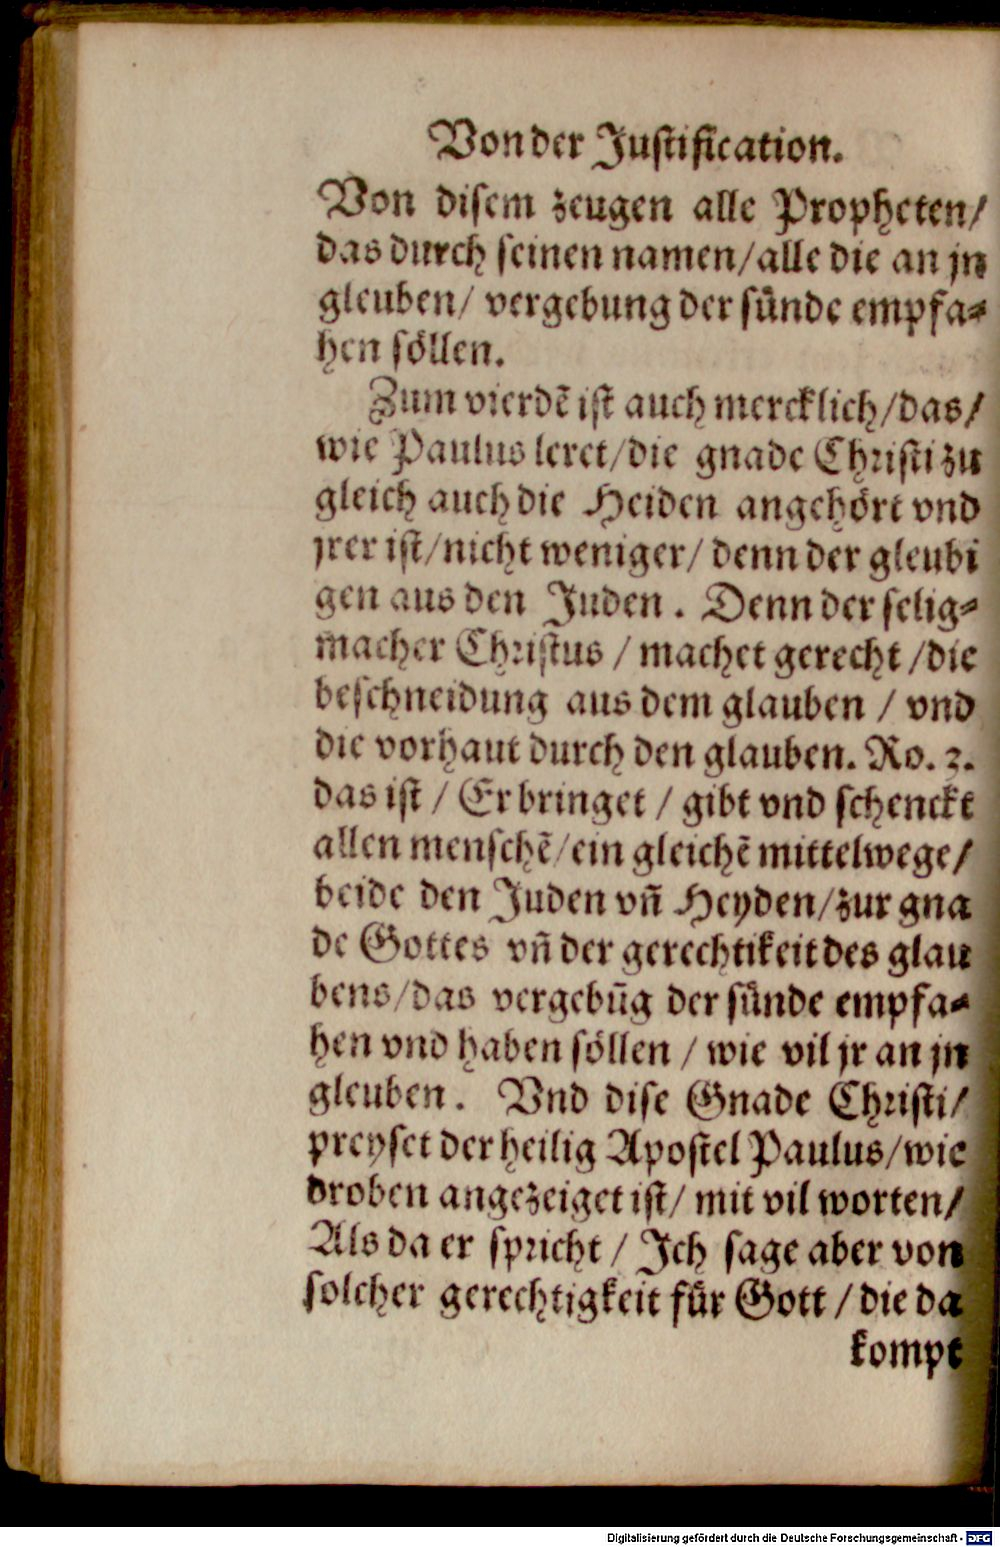 Von der Justification.
Von disem zeugen alle Propheten/
das durch seinen namen/alle die an jn
gleuben/ vergebung der sünde empfa⸗
hen söllen.
Zum vierdẽ ist auch mercklich/das/
wie Paulus leret/die gnade Christi zu
gleich auch die Heiden angehört vnd
jrer ist/nicht weniger/ denn der gleubi
gen aus den Juden. Denn der selig⸗
macher Christus / machet gerecht /die
beschneidung aus dem glauben / vnd
die vorhaut durch den glauben. Ro. 3.
das ist / Er bringet / gibt vnd schenckt
allen menschẽ/ein gleichẽ mittelwege/
beide den Juden vñ Heyden/zur gna
de Gottes vñ der gerechtikeit des glau
bens/das vergebũg der sünde empfa⸗
hen vnd haben söllen / wie vil jr an jn
gleuben. Vnd dise Gnade Christi/
preyset der heilig Apostel Paulus/wie
droben angezeiget ist/ mit vil worten/
Als da er spricht / Jch sage aber von
solcher gerechtigkeit für Gott / die da
kompt
Digitalisierung gefördert durch die Deutsche Forschungsgemeinschaft - DFG